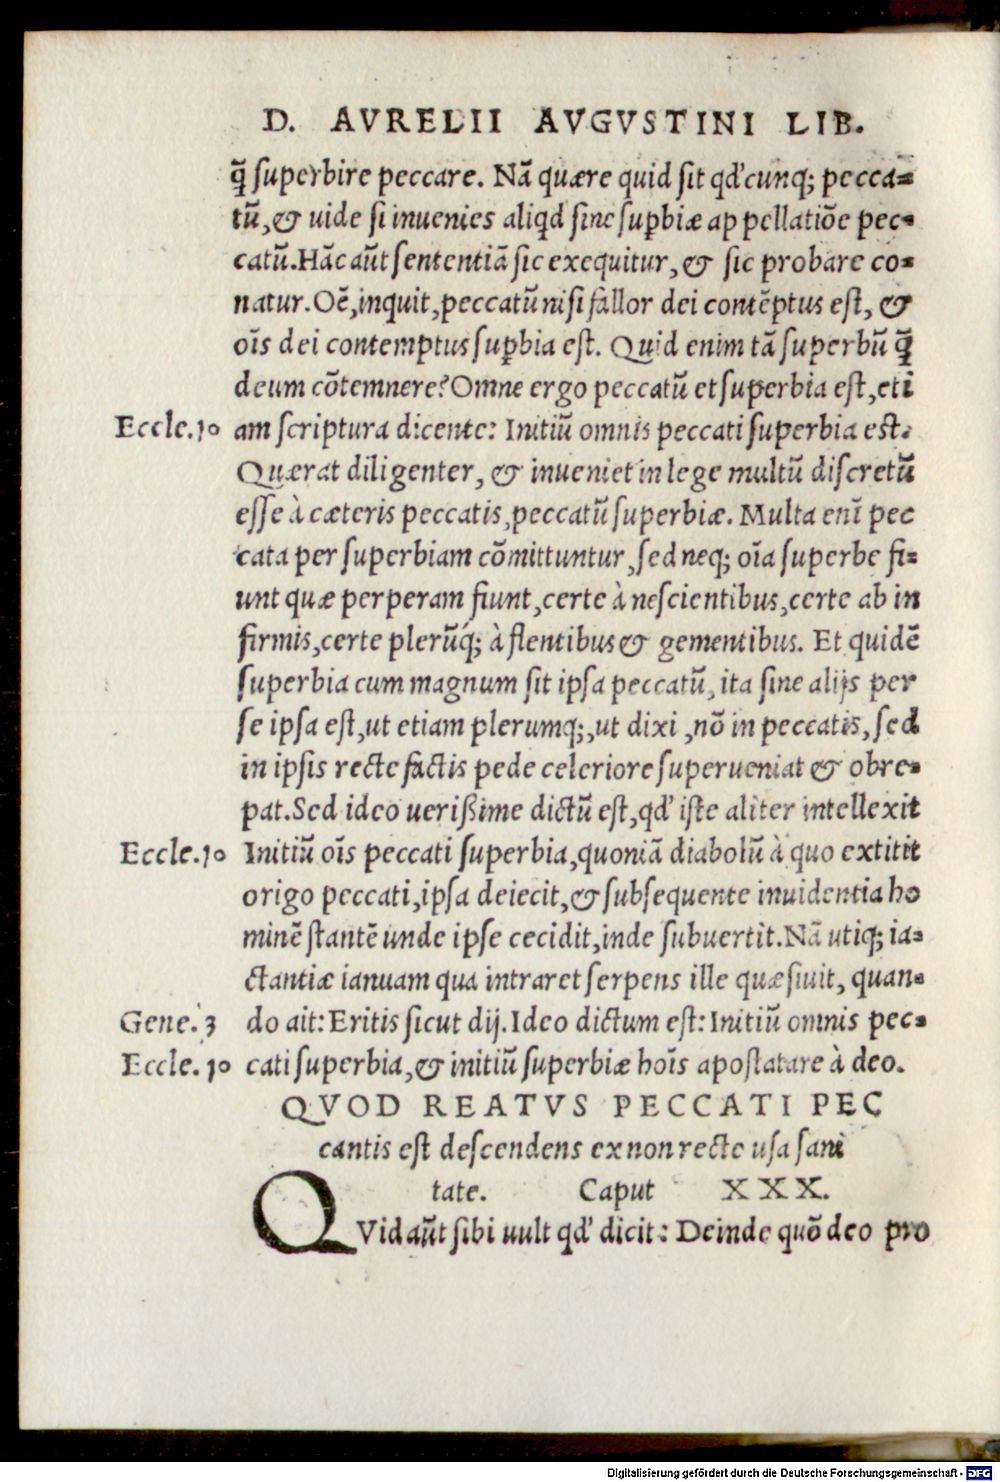 D. AVRELII AVGVSTINI LIB.
q̃ superbire peccare. Nã quære quid sit qď cunq; pecca-
tũ, & uide si inuenies aliqd sine supbiæ appellatiõe pec-
catũ. Hãc aũt sententiã sic exequitur, & sic probare co-
natur. Oẽ, inquit, peccatũ nisi fallor dei contẽptus est, &
oĩs dei contemptus supbia est. Quid enim tã superbũ q̃
deum cõtemnere? Omne ergo peccatũ et superbia est, eti
Eccle. 10 am scriptura dicente: Initiũ omnis peccati superbia est.
Quærat diligenter, & inueniet in lege multũ discretũ
esse à cæteris peccatis, peccatũ superbiæ. Multa enĩ pec
cata per superbiam cõmittuntur, sed neq; oĩa superbe fi-
unt quæ perperam fiunt, certe à nescientibus, certe ab in
firmis, certe plerũq́; à flentibus & gementibus. Et quidẽ
superbia cum magnum sit ipsa peccatũ, ita sine alijs per
se ipsa est, ut etiam plerumq;, ut dixi, nõ in peccatis, sed
in ipsis recte factis pede celeriore superueniat & obre-
pat. Sed ideo uerißime dictũ est, qď iste aliter intellexit
Eccle. 10 Initiũ oĩs peccati superbia, quoniã diabolũ à quo extitit
origo peccati, ipsa deiecit, & subsequente inuidentia ho
minẽ stantẽ unde ipse cecidit, inde subuertit. Nã utiq; ia-
ctantiæ ianuam qua intraret serpens ille quæsiuit, quan-
Gene. 3 do ait: Eritis sicut dij. Ideo dictum est: Initiũ omnis pec-
Eccle. 10 cati superbia, & initiũ superbiæ hoĩs apostatare à deo.
QVOD REATVS PECCATI PEC
cantis est descendens ex non recte usa sani
tate. Caput XXX.
QVid aũt sibi uult qď dicit: Deinde quõ deo pro
Digitalisierung gefördert durch die Deutsche Forschungsgemeinschaft - DFG